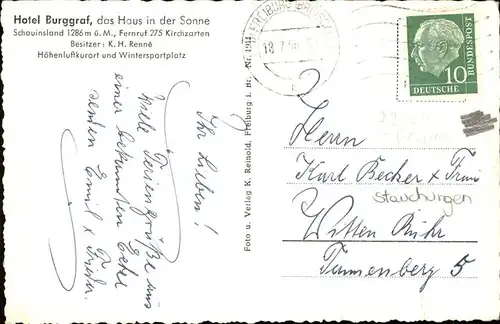 Hotel Burggraf, das Haus in der Sonne
Schauinsland 1286 m ü. M., Fernruf 275 Kirchzarten
Besitzer: K. H. Renné
Höhenluftkurort und Wintersportplatz
Ihr Lieben!
Viele Feriengrüße aus
einer bekannten Ecke
senden Emil +
Foto u. Verlag K. Reinold, Freiburg i. Br. Nr. 1914
FREIBURG
18.7.56
10
DEUTSCHE
BUNDESPOST
Herrn
Karl Becker + Frau
Stauchungen
Witten Ruhr
Tannenberg 5